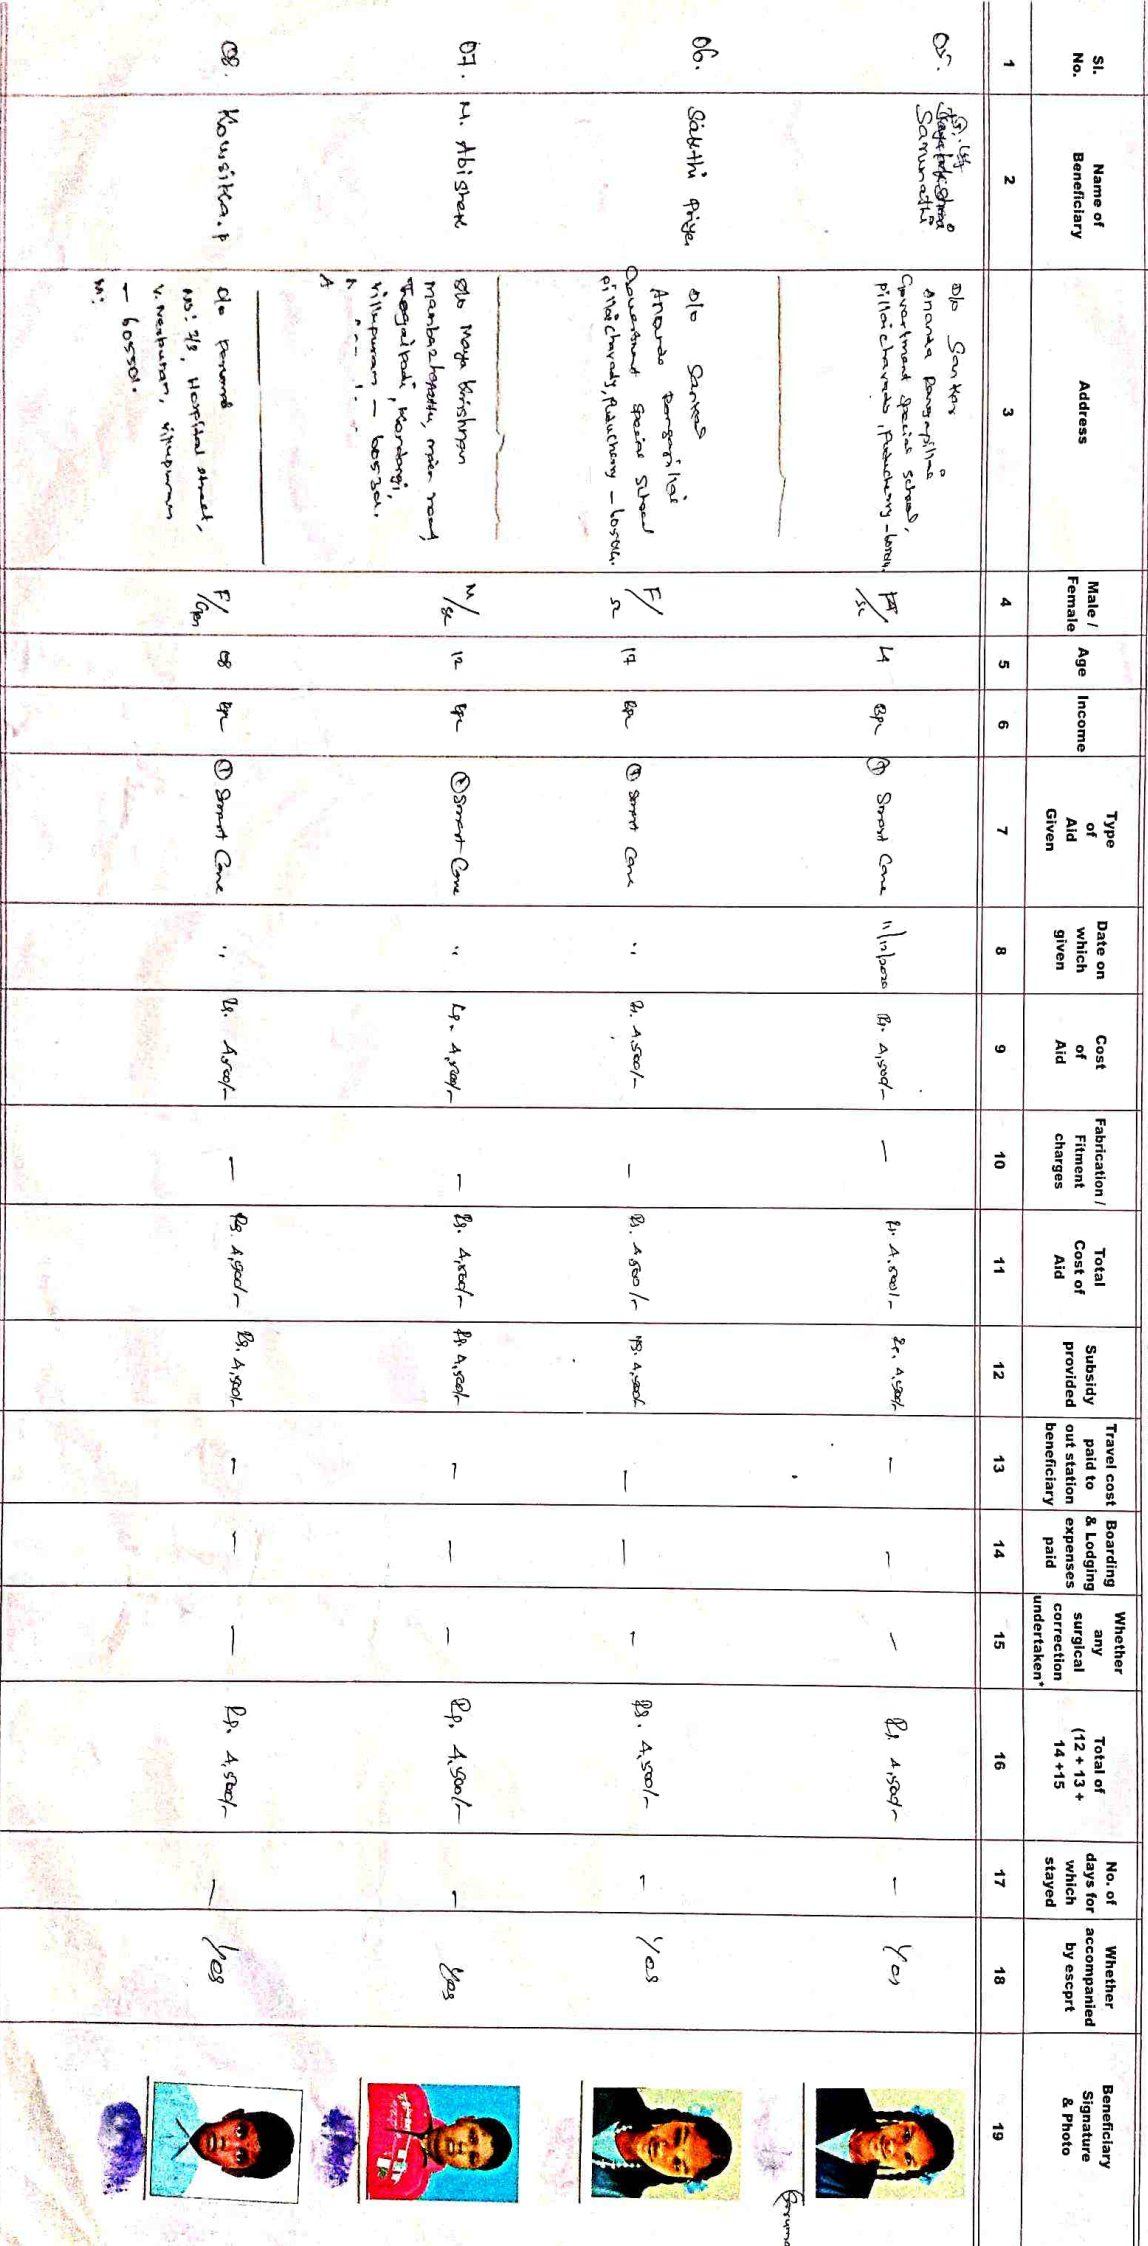 Sl. No.
Name of Beneficiary
Address
Male / Female
Age
Income
Type of Aid Given
Date on which given
Cost of Aid
Fabrication / Fitment charges
Total Cost of Aid
Subsidy provided
Travel cost paid to out station beneficiary
Boarding & Lodging expenses paid
Whether any surgical correction undertaken*
Total of (12 + 13 + 14 +15
No. of days for which stayed
Whether accompanied by escprt
Beneficiary Signature & Photo
1 2 3 4 5 6 7 8 9 10 11 12 13 14 15 16 17 18 19
05.
Sanumathi
D/o Sankar
Ananda Rangapillai
Government Special School,
pillaichavady, Puducherry –
SC
14
BPL
① Smart Cane
11/12/2020
Rs. 4,500/-
—
Rs. 4,500/-
Rs. 4,500/-
—
—
—
Rs. 4,500/-
—
Yes
06.
Sakthi Priya
D/o Sankar
Ananda Rangapillai
Government Special School
pillaichavady, Puducherry – 605014.
F/
SC
17
BPL
① Smart Cane
"
Rs. 4,500/-
—
Rs. 4,500/-
Rs. 4,500/-
—
—
—
Rs. 4,500/-
—
Yes
07.
M. Abishek
S/o Maya Krishnan
main road,
Villupuram – 605302.
M/
SC
12
BPL
① Smart Cane
"
Rs. 4,500/-
—
Rs. 4,500/-
Rs. 4,500/-
—
—
—
Rs. 4,500/-
—
Yes
08.
Kowsika.P
D/o
No: 2/8, Hospital street,
Villupuram
– 605501.
M:
F/
Gen
08
BPL
① Smart Cane
"
Rs. 4,500/-
—
Rs. 4,500/-
Rs. 4,500/-
—
—
—
Rs. 4,500/-
—
Yes